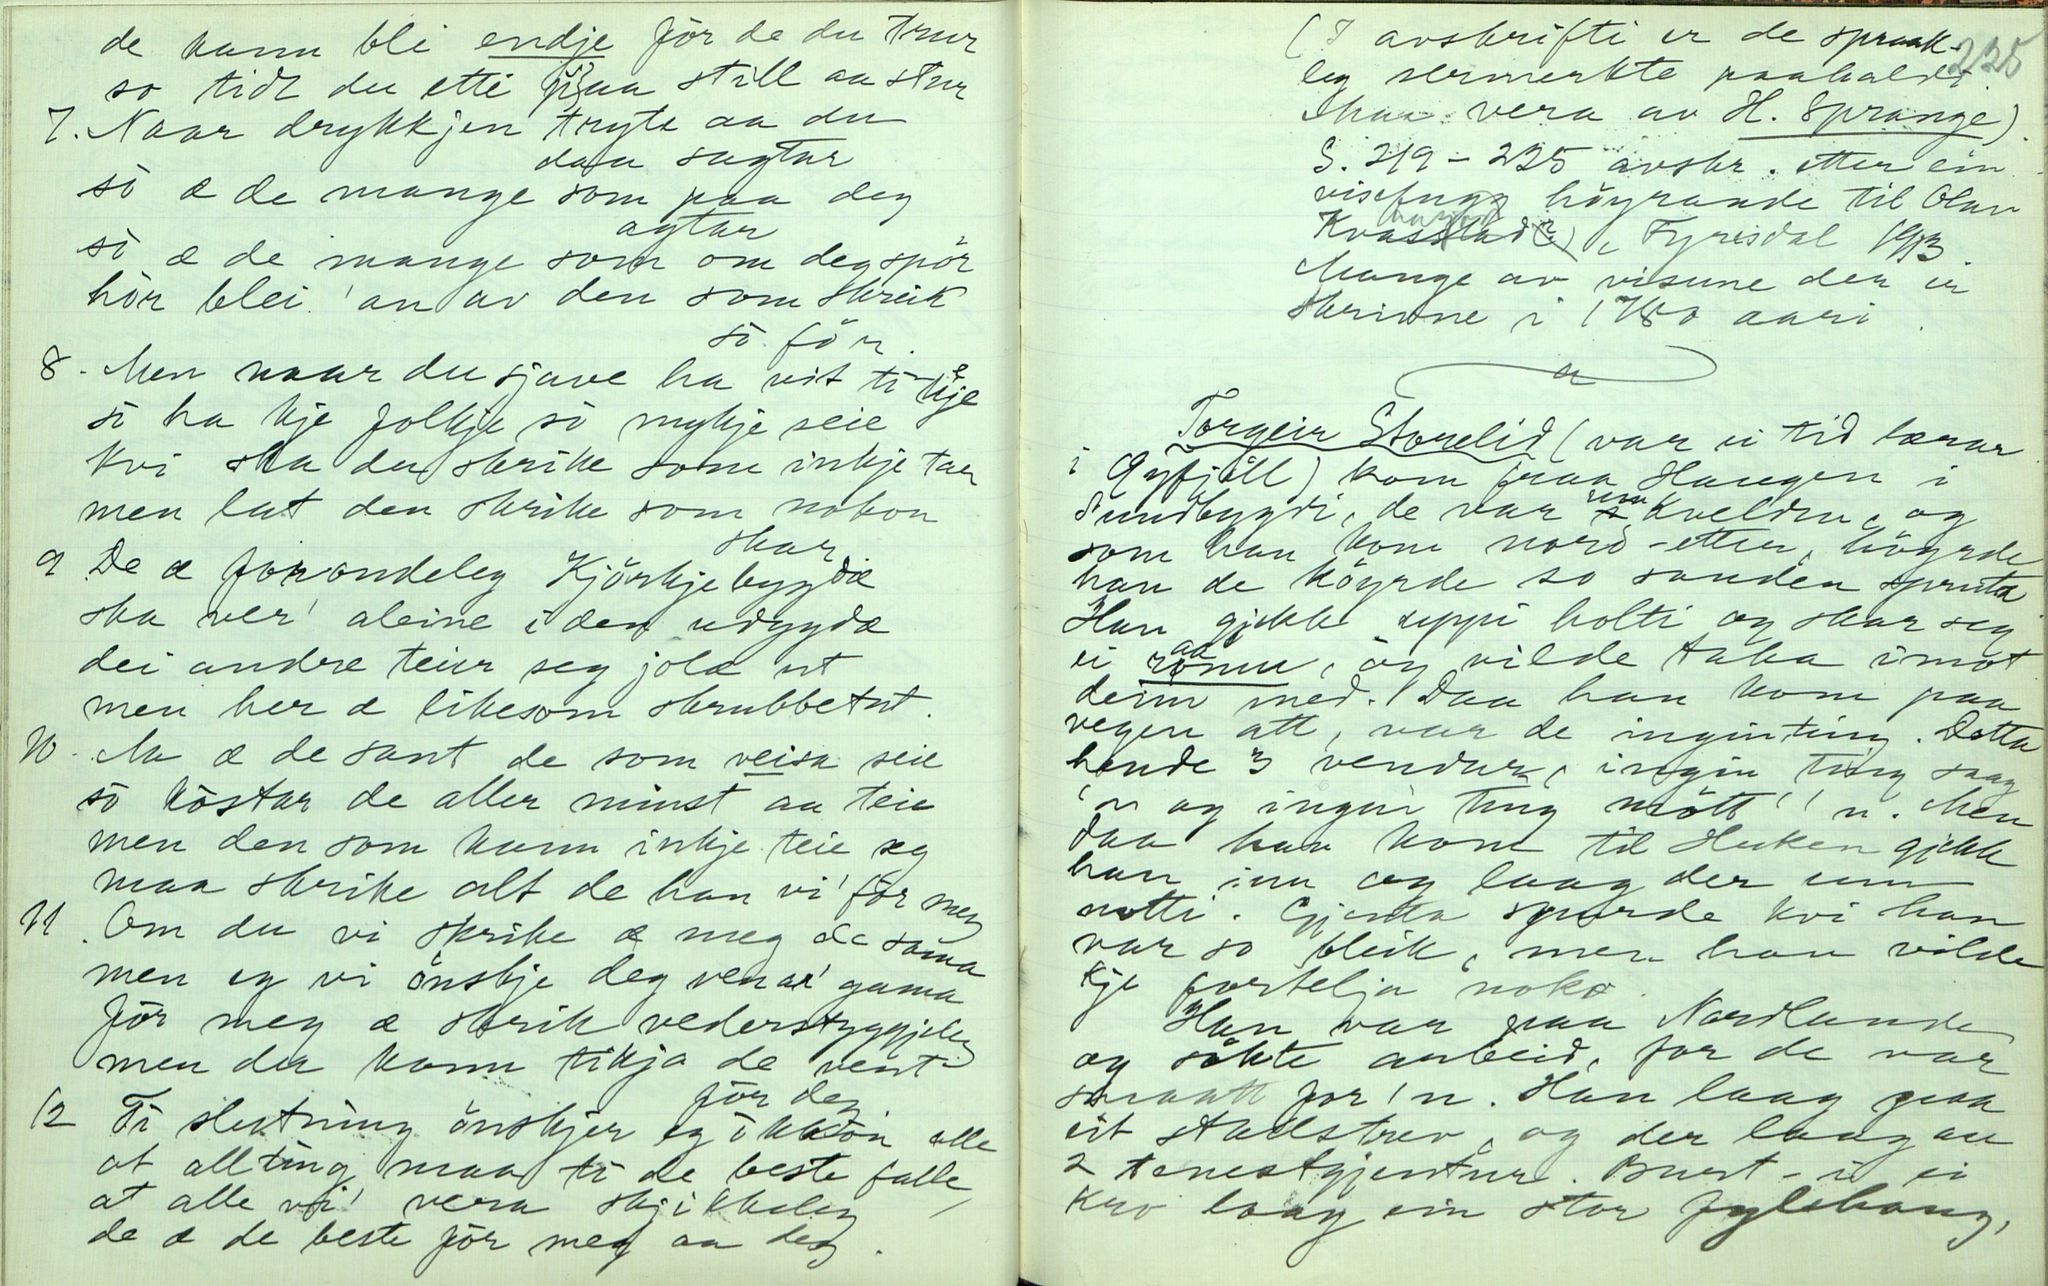 de kann bli endje för de du trur
so tidt du etti  still aa stur
7. Naar drykkjen tryte aa du
daa sagtar
sò æ de mange som paa deg
agtar
sò æ de mange som om deg spör
hör blei 'an av den som skreik
sò för.
8. Men naar du sjave ha vit ti kje
sò ha kje folkje sò mykje seie
kvi ska du skrike som inkje tar
men lat den skrike som nokon
skar
9 De æ forondeleg Kjörkjebygdæ
ska ver' aleine i den udygdæ
dei andre teier seg jolæ ut
men her æ likesom skrubbetut.
10. Nu æ de sant de som veisa seie
sò kostar de aller minst aa teie
men den som kann inkje teie seg
maa skrike alt de han vi' för meg
11. Om du vi skrike æ meg de sama
men eg vi önskje deg venar' gama
för meg æ skrik vederstyggjeleg
men du kann tikja de vent
för deg
12 Ti slutning önskjer eg i kkon alle
at allting maa ti de beste falle,
at alle vi' vera skjikkeleg
de æ de beste för meg aa deg.
235
(I avskrifti er de spraak-
leg sermerkte paahaldt.
Skaa vera av H. Sprange).
S. 219-235 avskr. etter ein
visebugg höyrande til Olav
Kvasstad(?) i Fyresdal 1913
Mange av visune der er
skrivne i 1780 aari.
Torgeir Storelid (var ei tid lærar
i Gyfjell) kom fraa Haugen i
Sundbygdi, de var um kvelden, og
som han kom nord-etter, höyrde
han de köyrde so sanden spruta
Han gjekk uppi holti og skar seg
ei raanu, og vilde taka imot
deim med. Daa han kom paa
vegen att, var de inginting. Detta
hende 3 vendur, ingin ting saag
'n og ingin ting mött' 'n. Men
daa han kom til Haken gjekk
han inn og laag der um
notti. Gjenta spurde kvi han
var so bleik, men han vilde
kje fortelja noko.
Han var paa Nordlande
og sökte arbeid, for de var
smaatt for 'n. Han laag paa
eit stadstrev, og der laag au
2 tenestgjentur. Burt-i ei
kro laag ein stor fylehaug,